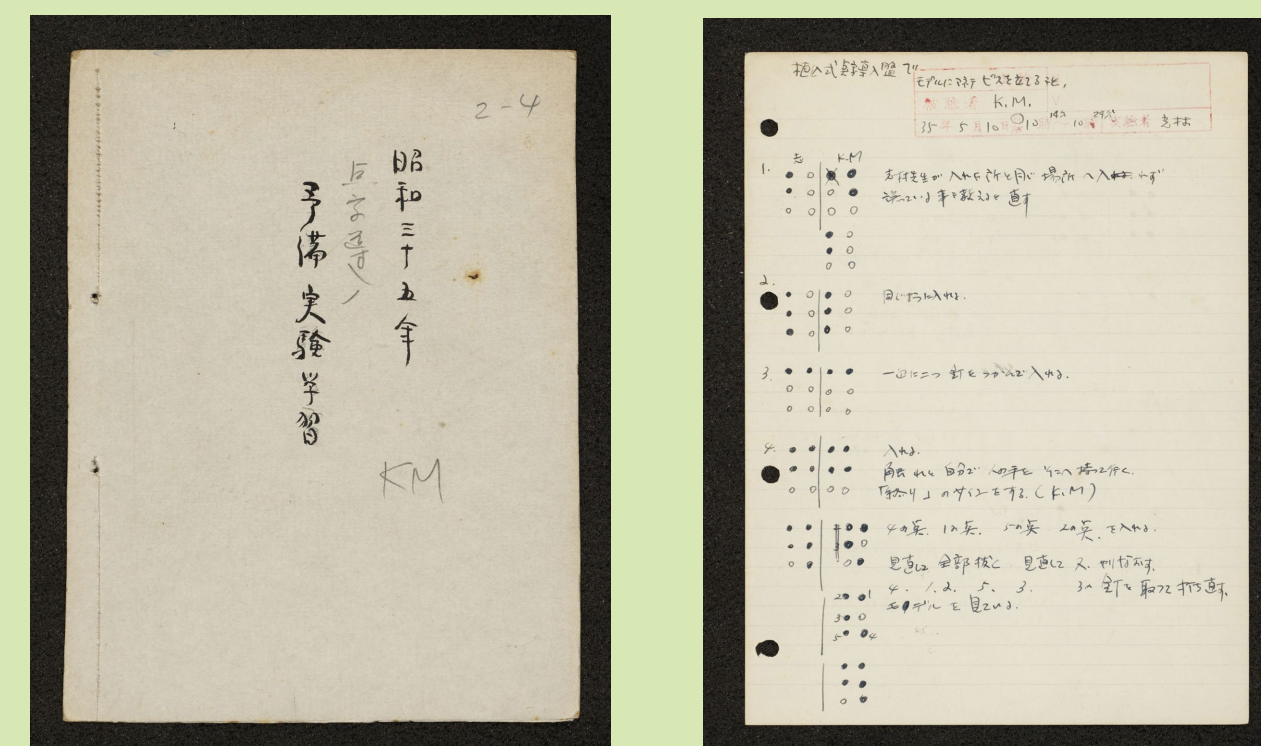 2-4
昭和三十五年
点字導入
予備実験学習
KM
植込式点字導入盤で
モデルにマネテ ビスを立てる
K.M.
35年5月10日 10 10
1. 志 K.M
志村先生が入れた所と同じ場所へ入れ
誤っている事を教えると直す
2. 同じように入れる.
3. 一回に二つ釘をつかんで入れる.
4. 入れる.
触れると自分で人の手をそこへ持って行く.
「終り」のサインをする.(K.M)
4の点. 1の点. 5の点 2の点. を入れる.
見直して全部抜く 見直して又. やりなおす.
4. 1. 2. 5. 3. 3の釘を取って打ち直す.
モデルを見ている.
2 1
3
5 4